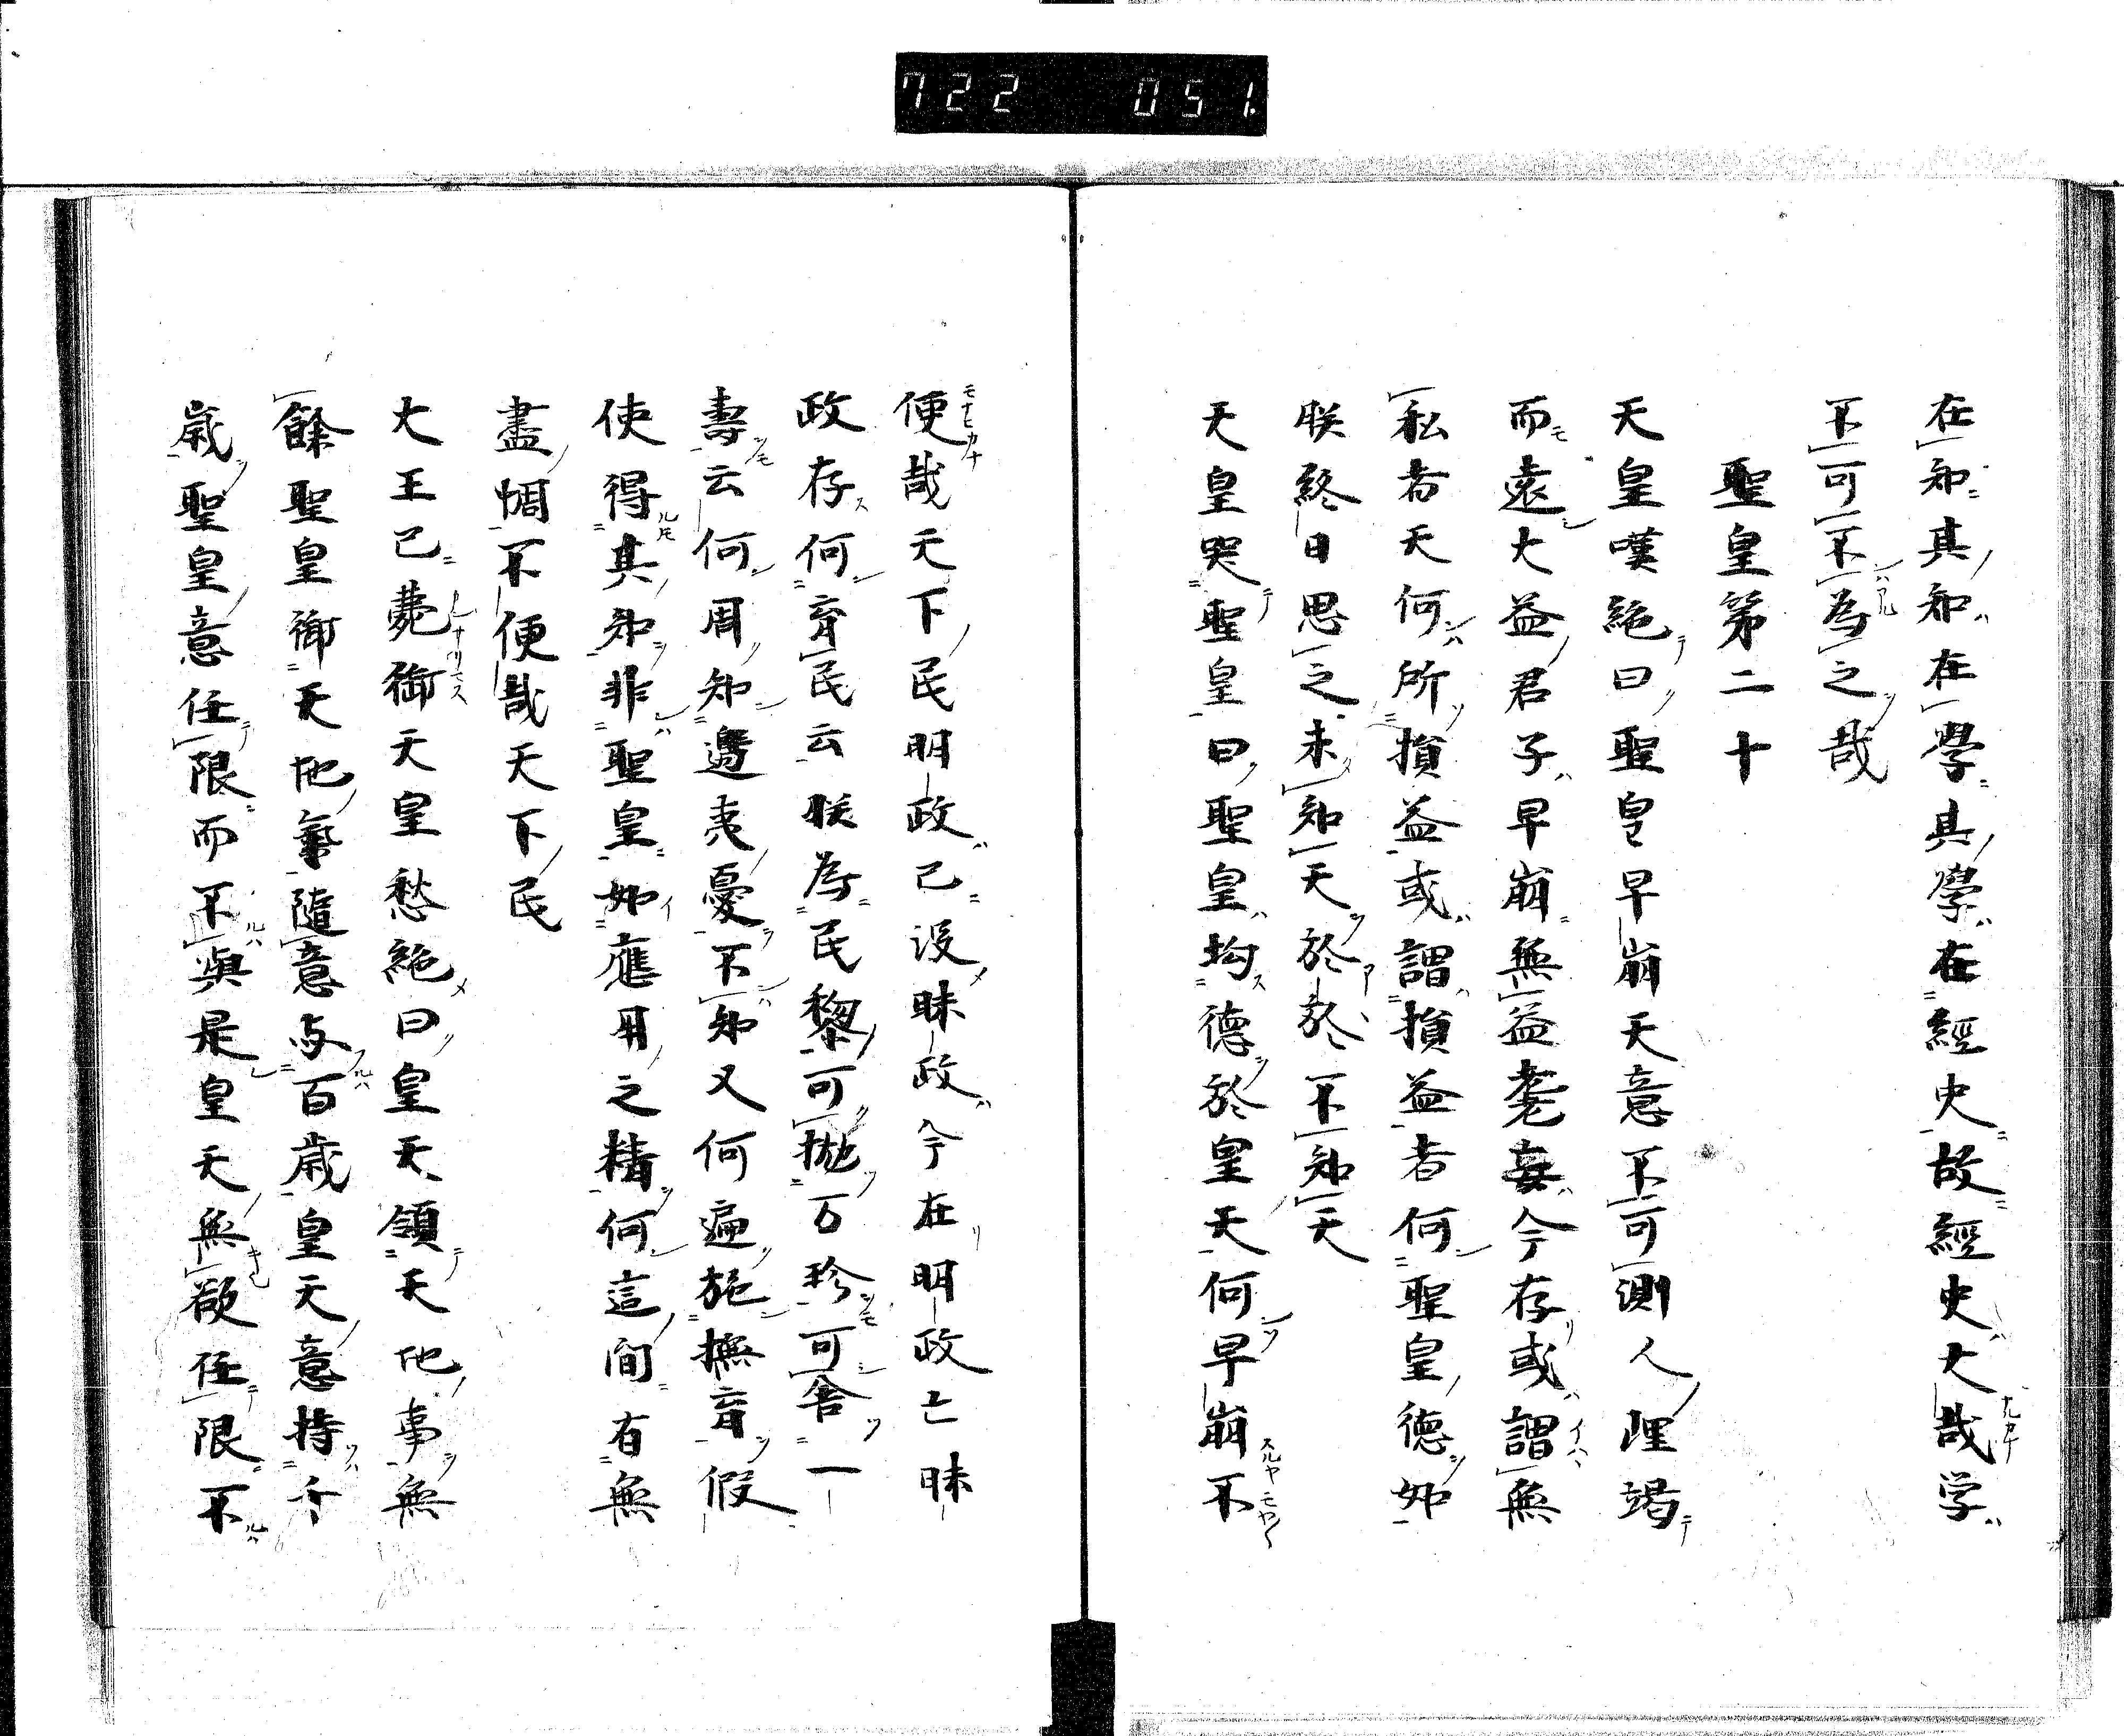 722 051
在知其知在學其學在經史故經史大哉学
不可不為之哉
聖皇第二十
天皇嘆絶曰聖皇早崩天意不可測人理竭
而遠大益君子早崩無益耄妄今存或謂無
私者天何所損益或謂損益者何聖皇德如
朕終日思之未知天於於不知天
天皇哭聖皇曰聖皇均德於皇天何早崩不
便哉天下民明政已没昧政今在明政亡昧
政存何育民云朕為民黎可拋万珍可舍一
壽云何周知邊夷憂不知又何遍施撫育假
使得其知非聖皇如應用之精何這間有無
盡惆不便哉天下民
大王已薨御天皇愁絶曰皇天領天地事無
餘聖皇御天地氣隨意与百歳皇天意持千
歳聖皇意任限而不與是皇天無欲任限不